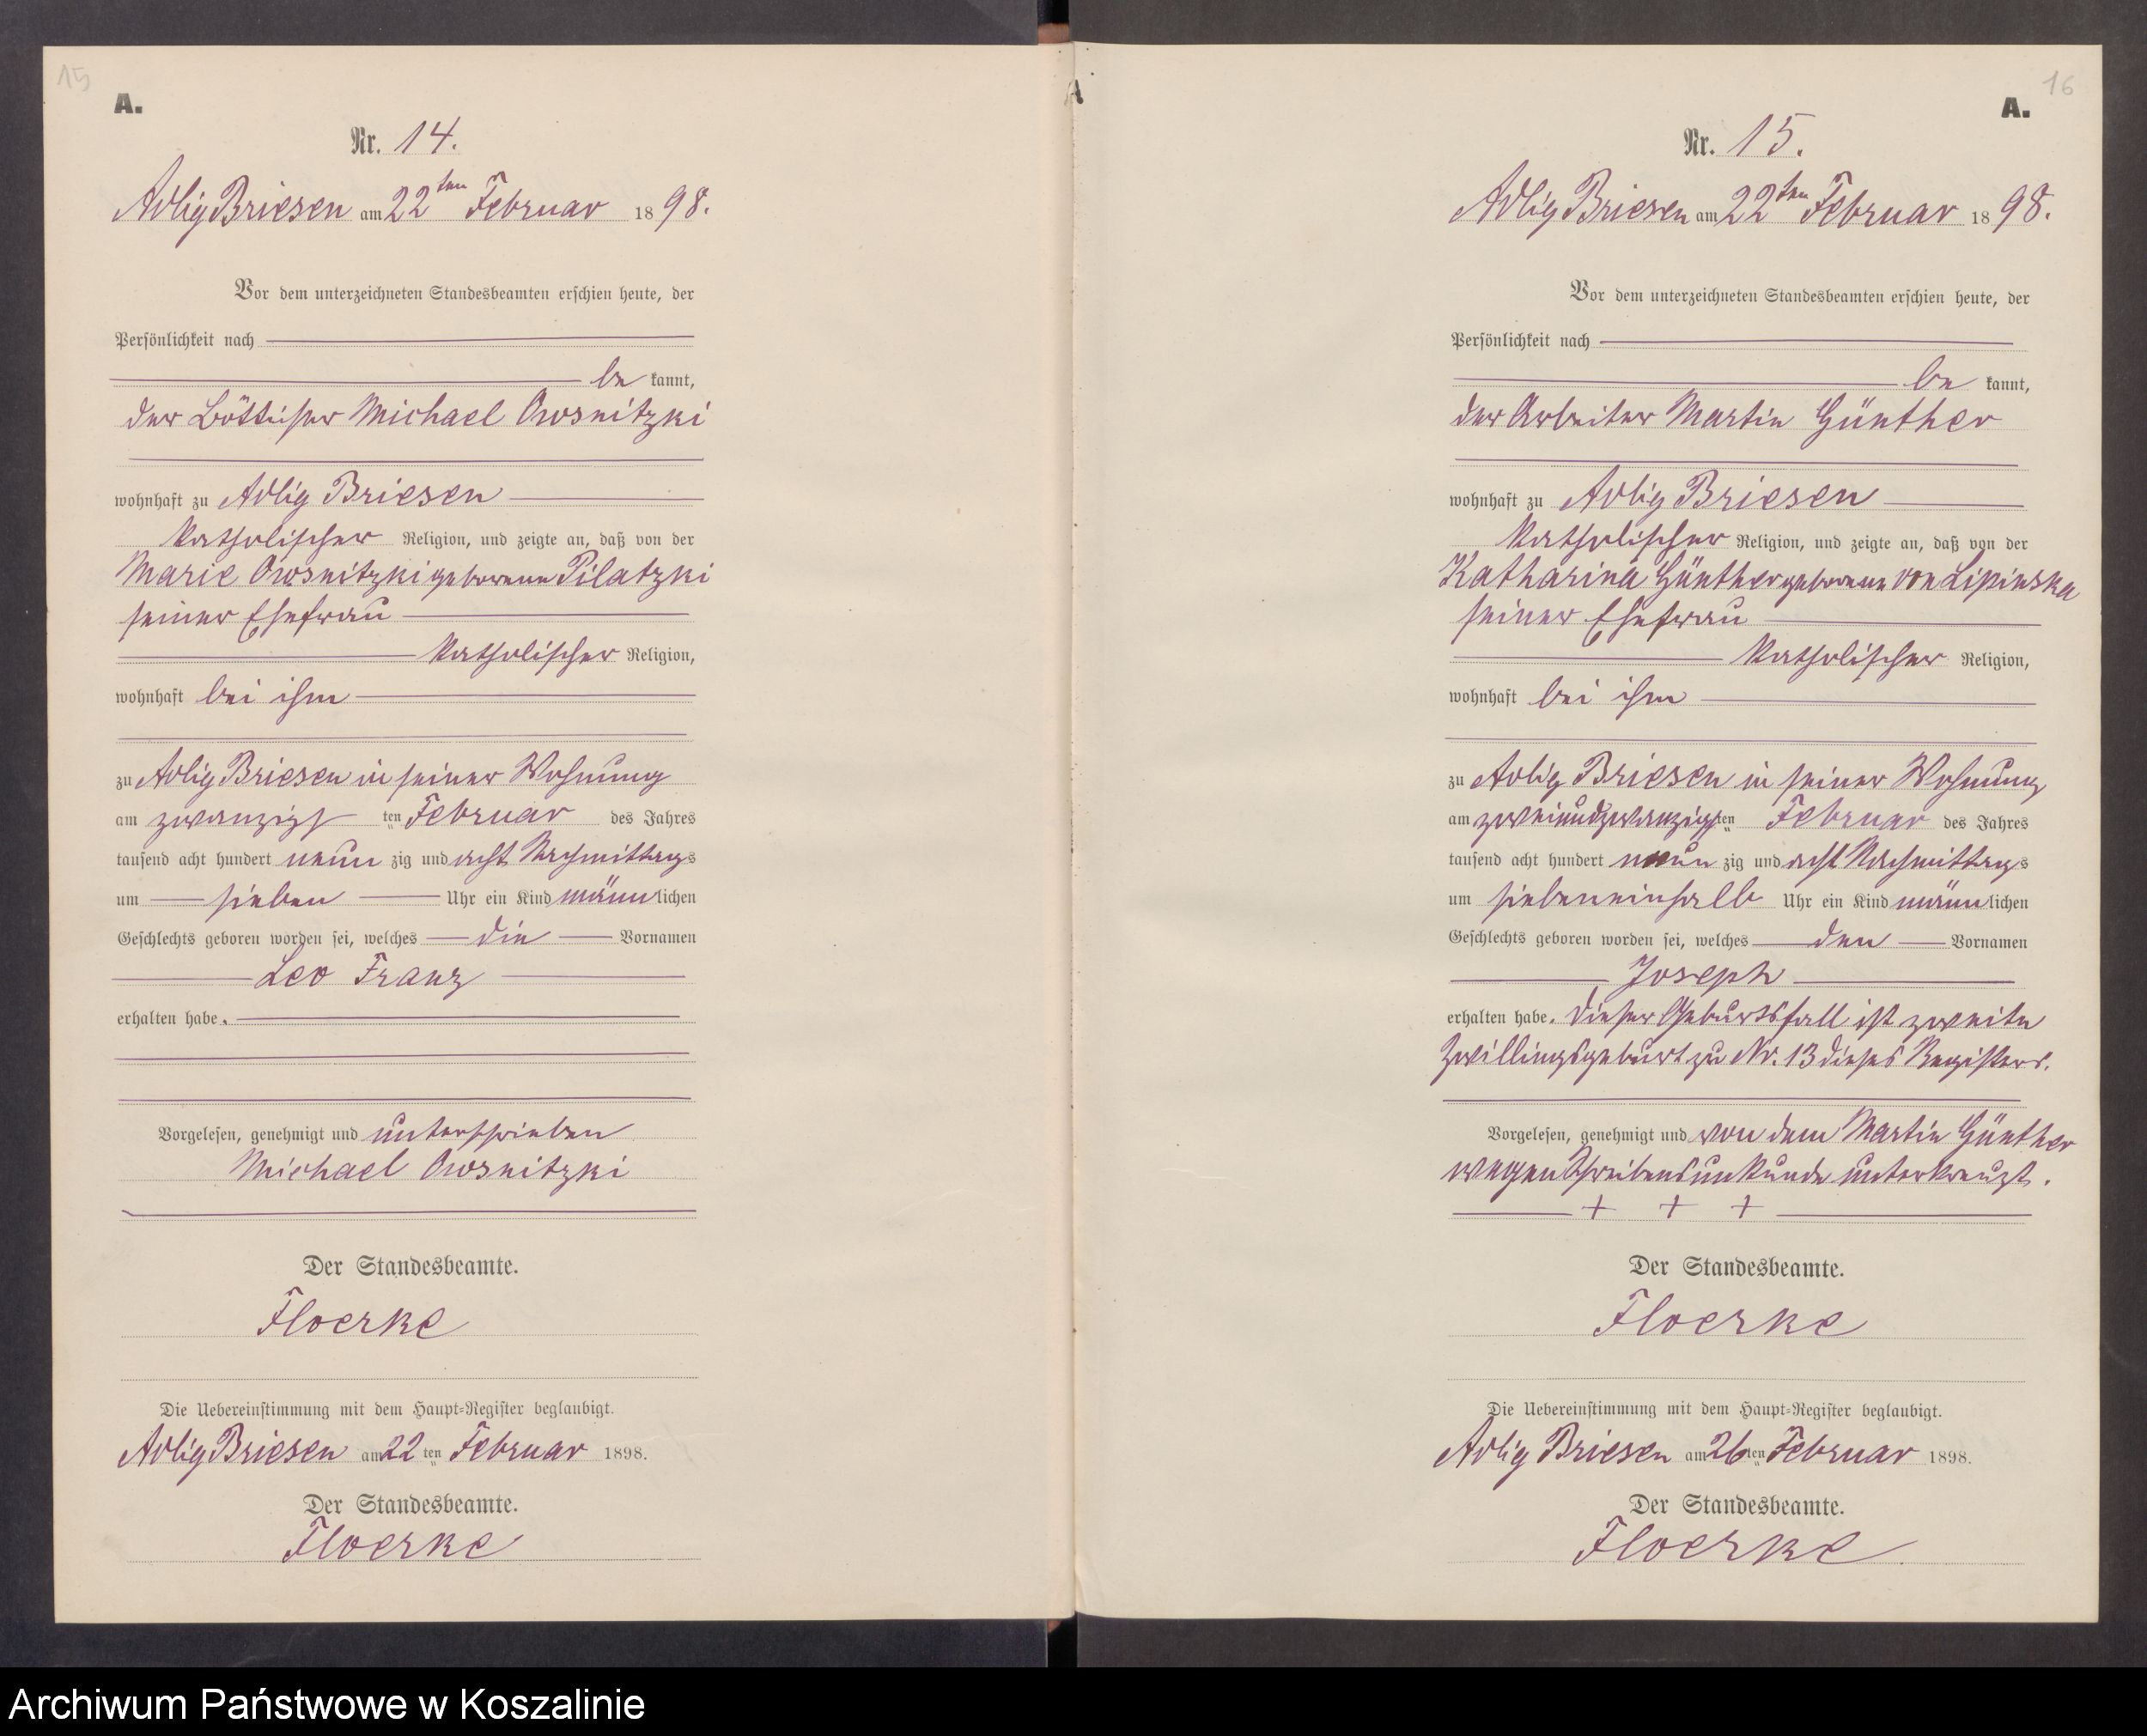 15
A.
Nr. 14.
Adlig Briesen am 22ten Februar 1898.
Vor dem unterzeichneten Standesbeamten erschien heute, der
Persönlichkeit nach
be kannt,
der Böttcher Michael Owsnitzki
wohnhaft zu Adlig Briesen
katholischer Religion, und zeigte an, daß von der
Marie Owsnitzki geborenen Pilatzki
seiner Ehefrau
katholischer Religion,
wohnhaft bei ihm
zu Adlig Briesen in seiner Wohnung
am zwanzigs ten Februar des Jahres
tausend acht hundert neun zig und acht Nachmittags
um sieben Uhr ein Kind männlichen
Geschlechts geboren worden sei, welches die Vornamen
Leo Franz
erhalten habe.
Vorgelesen, genehmigt und unterschrieben
Michael Owsnitzki
Der Standesbeamte.
Floerke
Die Uebereinstimmung mit dem Haupt-Register beglaubigt.
Adlig Briesen am 22ten Februar 1898.
Der Standesbeamte.
Floerke
A
16
A.
Nr. 15.
Adlig Briesen am 22ten Februar 1898.
Vor dem unterzeichneten Standesbeamten erschien heute, der
Persönlichkeit nach
be kannt,
der Arbeiter Martin Günther
wohnhaft zu Adlig Briesen
katholischer Religion, und zeigte an, daß von der
Katharina Günther geborenen von Lipinska
seiner Ehefrau
katholischer Religion,
wohnhaft bei ihm
zu Adlig Briesen in seiner Wohnung
am zweiundzwanzigsten Februar des Jahres
tausend acht hundert neun zig und acht Nachmittags
um siebeneinhalb Uhr ein Kind männlichen
Geschlechts geboren worden sei, welches den Vornamen
Joseph
erhalten habe. Dieser Geburtsfall ist zweite
Zwillingsgeburt zu Nr. 13 dieses Registers.
Vorgelesen, genehmigt und von dem Martin Günther
wegen Schreibensunkunde unterkreuzt.
+ + +
Der Standesbeamte.
Floerke
Die Uebereinstimmung mit dem Haupt-Register beglaubigt.
Adlig Briesen am 26ten Februar 1898.
Der Standesbeamte.
Floerke
Archiwum Państwowe w Koszalinie